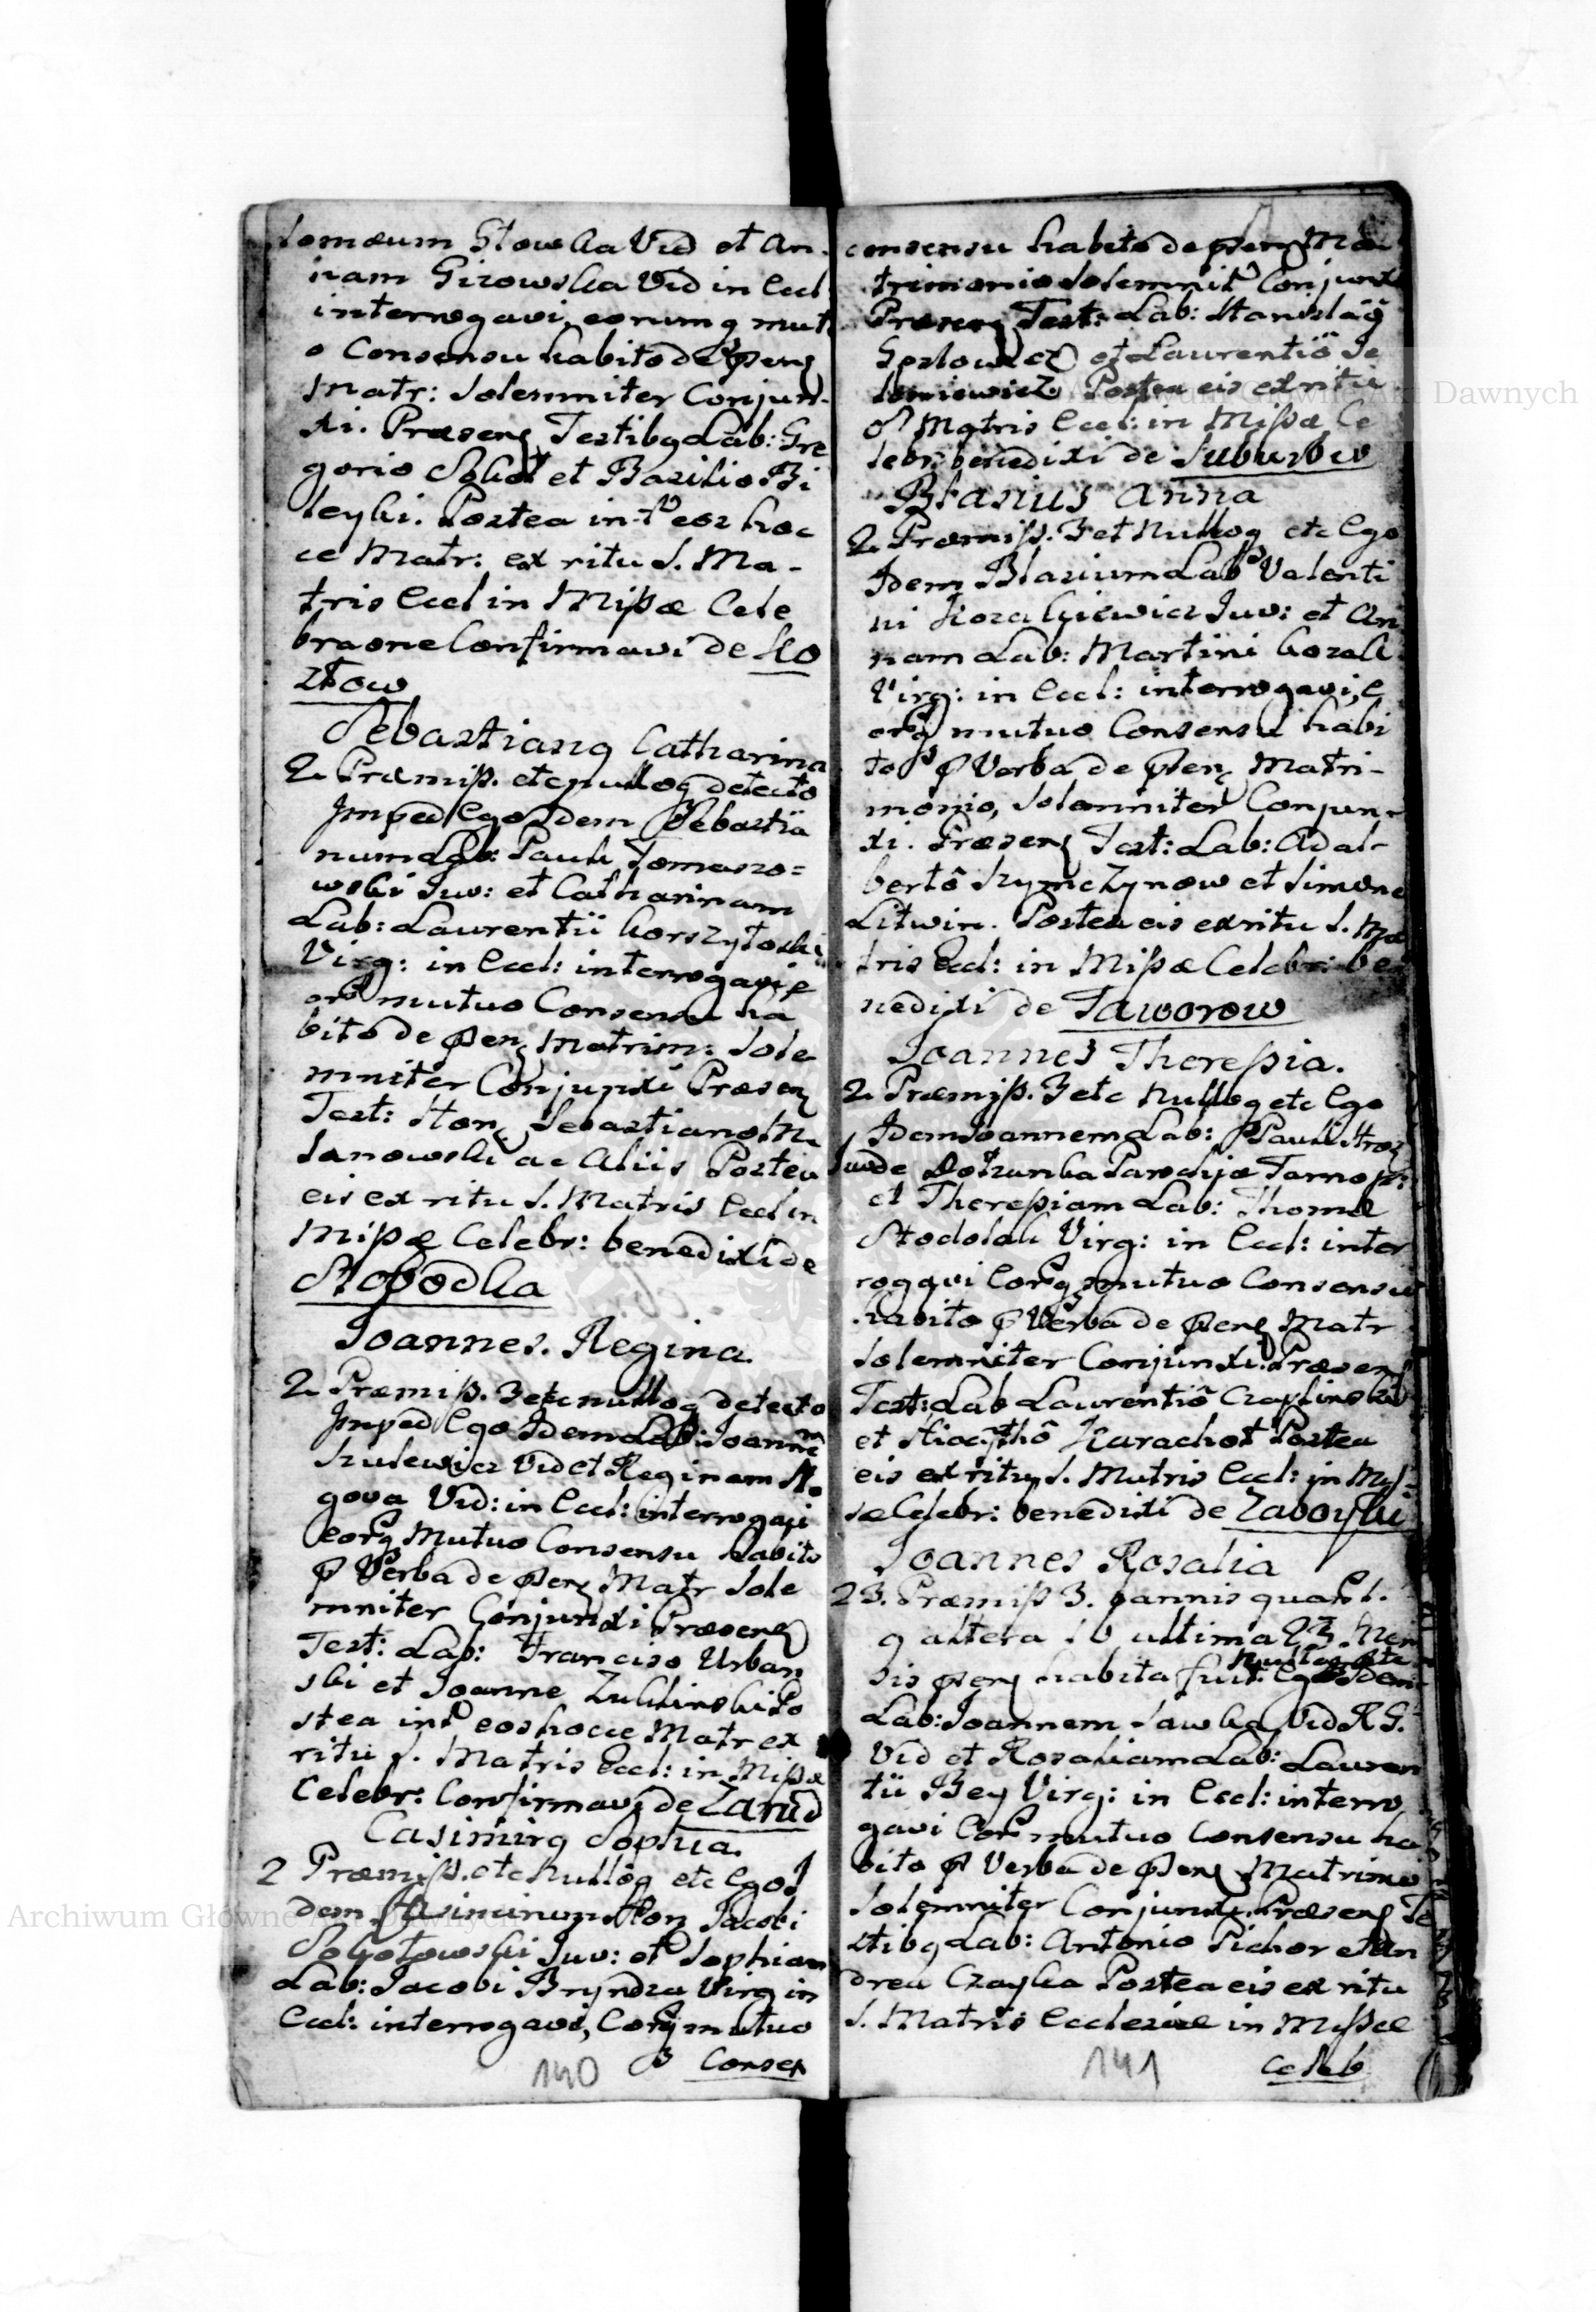 tomæum Stowka Vid et An-
nam Gizowska Vid in Eccl
interrogavi, eorumq mutu
o Consensu habito de psens
Matr: Solemniter Conjun-
xi. Præsens Testibq Lab: Gre
gorio Sokol et Bazilio Bi
leyki. Postea int eos hoc
ce Matr: ex ritu S. Ma-
tris Eccl in Missæ Cele
braone Confirmavi de Ko
ztow
Sebastianq Catharina
2 Præmiss. etc nulloq detecto
Imped Ego Idem Sebastia
num Lab: Pauli Tomaszo=
wski Juv: et Catharinam
Lab: Laurentii Korszytoski
Virg: in Eccl: interrogavi e
orq mutuo Consensu ha
bito de psens Matrim: Sole
mniter Conjunxi Præsens
Test: Hon Sebastiano
Janowski ac Aliis Postea
eis ex ritu S. Matris Eccl in
Missæ Celebr: benedixi de
Stobodka
Joannes. Regina
2 Præmiss. 3 etc nulloq detecto
Imped Ego Idem Lab: Joannem
Kulewicz Vid et Reginam No
gova Vid: in Eccl: interrogavi
eorq Mutuo Consensu habito
p Verba de psens Matr Sole
mniter Conjunxi Præsens
Test: Lab: Franciso Urban
ski et Joanne Zuklinski Po
stea int eos hocce Matr ex
ritu S. Matris Eccl: in Missæ
Celebr: Confirmavi de Zarud
Casimirq Sophia.
2 Præmiss. etc nulloq etc Ego I
dem Casimirum Hon Jacobi
Sokotowski Juv: et Sophiam
Lab: Jacobi Bryndza Virg in
Eccl: interrogavi, Eorq mutuo
140 Consen
consensu habito de psens Ma
trimonio Solemnit Conjunxi
Præsens Test: Lab: Stanislaq
et Laurentio Se
Postea eis ex ritu
S Matris Eccl: in Missæ Ce
lebr: benedixi de Suburbio
Btasius Anna
2 Præmiss. 3 et Nulloq etc Ego
Idem Blasium Lab Valenti
ni Kozakiewicz Juv: et An
nam Lab: Martini Kozak
Virg: in Eccl: interrogavi, e
orq mutuo Consensu habi
to p Verba de psens Matri-
monio, Solemniter Conjun-
xi. Præsens Test: Lab: Adal-
berto Szymczynow et Simone
Litwin. Postea eis ex ritu S. Ma
tris Eccl: in Missæ Celebr: be
nedixi de Jaworow
Joannes Theressia.
2 Præmiss. 3 etc Nulloq etc Ego
Idem Joannem Lab: Pauli
Juv de Parochiæ Tarnop:
et Theressiam Lab: Thomæ
Stodolak Virg: in Eccl: inter
rogavi Eorq mutuo Consensu
habito p Verba de psens Matr
Solemniter Conjunxi. Præsens
Test: Lab Laurentio Czaplinski
et Hiacyntho Karachot Postea
eis ex ritu S. Matris Eccl: in Mis=
sæ Celebr: benedixi de Zaboyki
Joannes Rosalia
23. Præmiss 3. bannis quar. 1.
9 altera 16 ultima 23 Men
sis psens habita fuit. Nulloq etc Ego Idem
Lab: Joannem Sawka Vid R G.
Vid et Rosaliam Lab: Lauren
tii Bey Virg: in Eccl: interro
gavi Eorq mutuo Consensu ha
bito p Verba de psens Matrimo
Solemniter Conjunxi. Præsens Te
stibq Lab: Antonio Pichor et An
drea Czayka Postea eis ex ritu
S. Matris Ecclesiæ in Missæ
141 Celeb
Archiwum Główne Akt Dawnych
Archiwum Główne Akt Dawnych